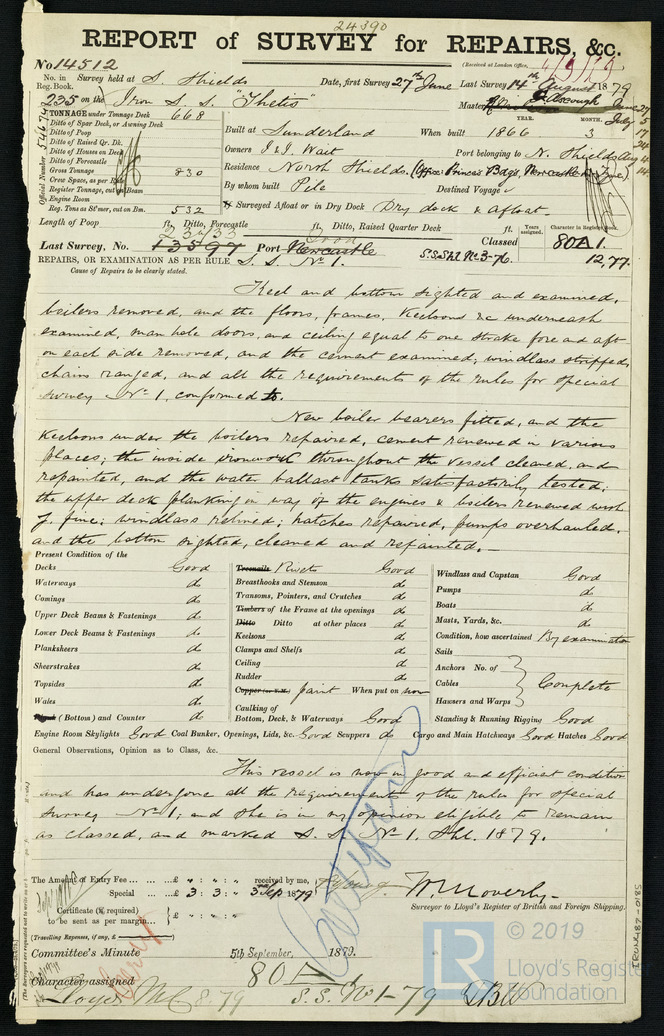 24390
REPORT of SURVEY for REPAIRS, &c.
No 14512
(Received at London Office,
No. in Reg. Book.
Survey held at S. Shields
Date, first Survey 27th June
Last Survey 14th August 1879
235 on the Iron S. S. "Thetis"
Master
TONNAGE under Tonnage Deck 668
Ditto of Spar Deck, or Awning Deck
Ditto of Poop
Ditto of Raised Qr. Dk.
Ditto of Houses on Deck
Ditto of Forecastle
Gross Tonnage 830
Crew Space, as per Rule
Register Tonnage, cut on Beam
Engine Room
Reg. Tons as St'mer, cut on Bm. 532
Official Number
YEAR. MONTH.
Built at Sunderland When built 1866 3
Owners I & J. Wait Port belonging to N. Shields
Residence North Shields.
By whom built Pile Destined Voyage
Surveyed Afloat or in Dry Dock Dry dock & afloat.
June 27
July 5
17
24
Aug 4
14
Length of Poop ft. Ditto, Forecastle ft. Ditto, Raised Quarter Deck ft.
Years assigned.
Character in Register Book.
Last Survey, No. 13597 Port Newcastle
S.S.Shl. No. 3-76.
Classed 80A1.
12,77.
REPAIRS, OR EXAMINATION AS PER RULE S. S. No 1.
Cause of Repairs to be clearly stated.
Keel and bottom sighted and examined,
boilers removed, and the floors, frames, Keelsons &c underneath
examined, man hole doors, and ceiling equal to one strake fore and aft
on each side removed, and the cement examined; windlass stripped,
chains ranged, and all the requirements of the rules for special
survey No 1, conformed to.
New boiler bearers fitted, and the
Keelsons under the boilers repaired, cement renewed in various
places; the inside ironwork throughout the vessel cleaned, and
repainted, and the water ballast tanks satisfactorily tested;
the upper deck planking in way of the engines & boilers renewed with
y. pine; windlass refined; hatches repaired, pumps overhauled,
and the bottom sighted, cleaned and repainted.
Present Condition of the
Decks Good
Waterways do
Comings do
Upper Deck Beams & Fastenings do
Lower Deck Beams & Fastenings do
Planksheers do
Sheerstrakes do
Topsides do
Wales do
(Bottom) and Counter do
Treenails Rivets Good
Breasthooks and Stemson do
Transoms, Pointers, and Crutches do
Timbers of the Frame at the openings do
Ditto Ditto at other places do
Keelsons do
Clamps and Shelfs do
Ceiling do
Rudder do
paint When put on now
Caulking of
Bottom, Deck, & Waterways Good
Windlass and Capstan Good
Pumps do
Boats do
Masts, Yards, &c. do
Condition, how ascertained By examination
Sails
Anchors No. of
Cables Complete
Hawsers and Warps
Standing & Running Rigging Good
Engine Room Skylights Good Coal Bunker, Openings, Lids, &c. Good Scuppers do Cargo and Main Hatchways Good Hatches Good
General Observations, Opinion as to Class, &c.
This vessel is now in good and efficient condition
and has undergone all the requirements of the rules for special
survey No 1; and she is in my opinion eligible to remain
as classed, and marked S. S. No 1. Shl. 1879.
The Amount of Entry Fee £ : : received by me,
Special £ 3 : 3 : 3 Sep 1879
Certificate (if required) £ : :
to be sent as per margin
(Travelling Expenses, if any, £
Surveyor to Lloyd's Register of British and Foreign Shipping.
Committee's Minute 5th September, 1879.
Character assigned 80A1
Lloyds MC 8.79 S.S. No 1-79
© 2019
LR
Lloyd's Register
Foundation